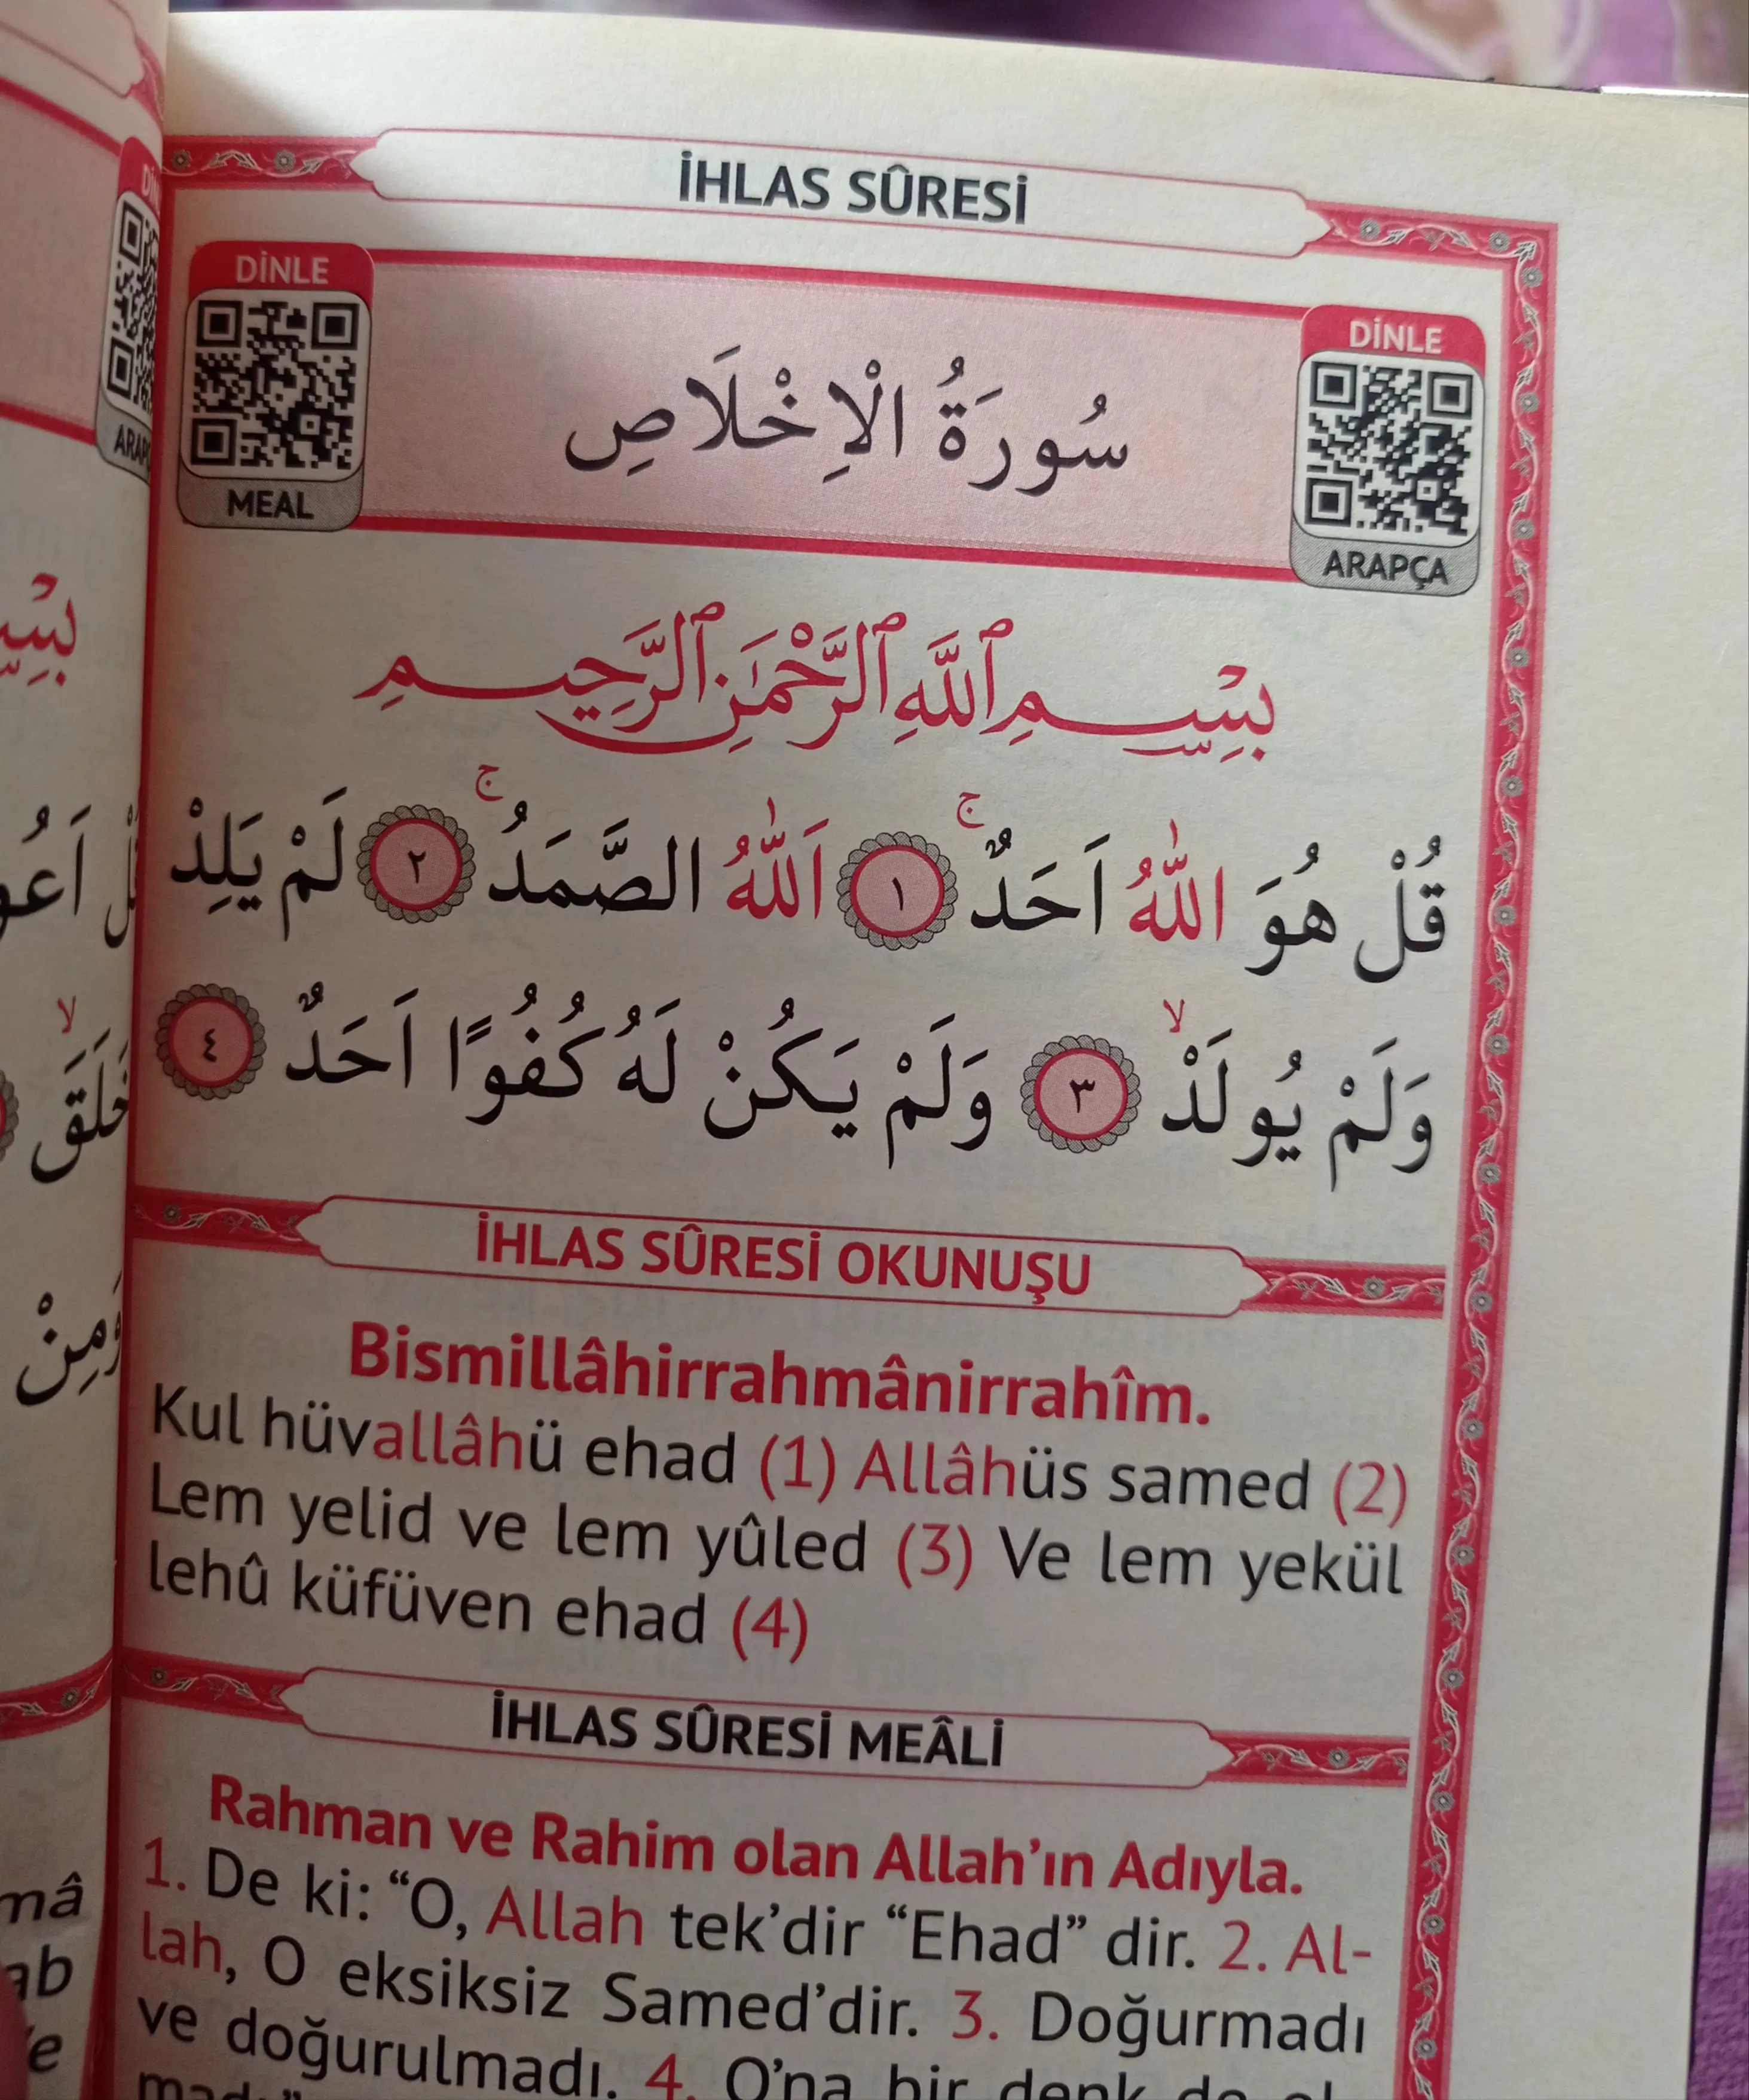 İHLAS SÛRESİ
DİNLE
MEAL
سُورَةُ الْاِخْلَاصِ
DİNLE
ARAPÇA
بِسْمِ ٱللَّهِ ٱلرَّحْمَٰنِ ٱلرَّحِيمِ
قُلْ هُوَ اللّٰهُ اَحَدٌۚ ﴿١﴾ اَللّٰهُ الصَّمَدُۚ ﴿٢﴾ لَمْ يَلِدْ
وَلَمْ يُولَدْۙ ﴿٣﴾ وَلَمْ يَكُنْ لَهُ كُفُوًا اَحَدٌ ﴿٤﴾
İHLAS SÛRESİ OKUNUŞU
Bismillâhirrahmânirrahîm.
Kul hüvallâhü ehad (1) Allâhüs samed (2)
Lem yelid ve lem yûled (3) Ve lem yekül
lehû küfüven ehad (4)
İHLAS SÛRESİ MEÂLİ
Rahman ve Rahim olan Allah’ın Adıyla.
1. De ki: “O, Allah tek’dir “Ehad” dir. 2. Al-
lah, O eksiksiz Samed’dir. 3. Doğurmadı
ve doğurulmadı. 4. O’na bir denk de ol-